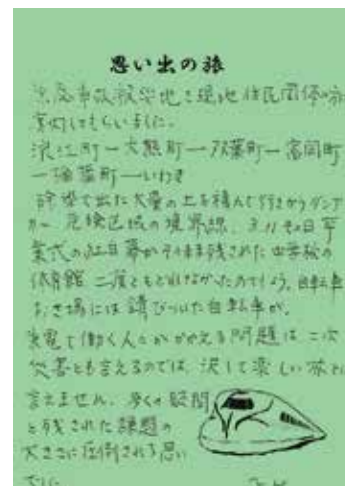 思い出の旅
原発事故被災地を現地住民団体の
案内してもらいました。
浪江町ー大熊町ー双葉町ー富岡町
ー楢葉町ーいわき
除染で出た大量の土を積んで行きかうダンプ
カー 危険区域の境界線、3.11その日 卒
業式の紅白幕がそのまま残された中学校の
体育館 二度ともどれなかったのでしょう、自転車
おき場には錆びついた自転車が。
原発で働く人々がかかえる問題は二次
災害とも言えるのでは、決して楽しい旅と
言えません。多くの疑問
と残された課題の
大きさに圧倒される思い
でした